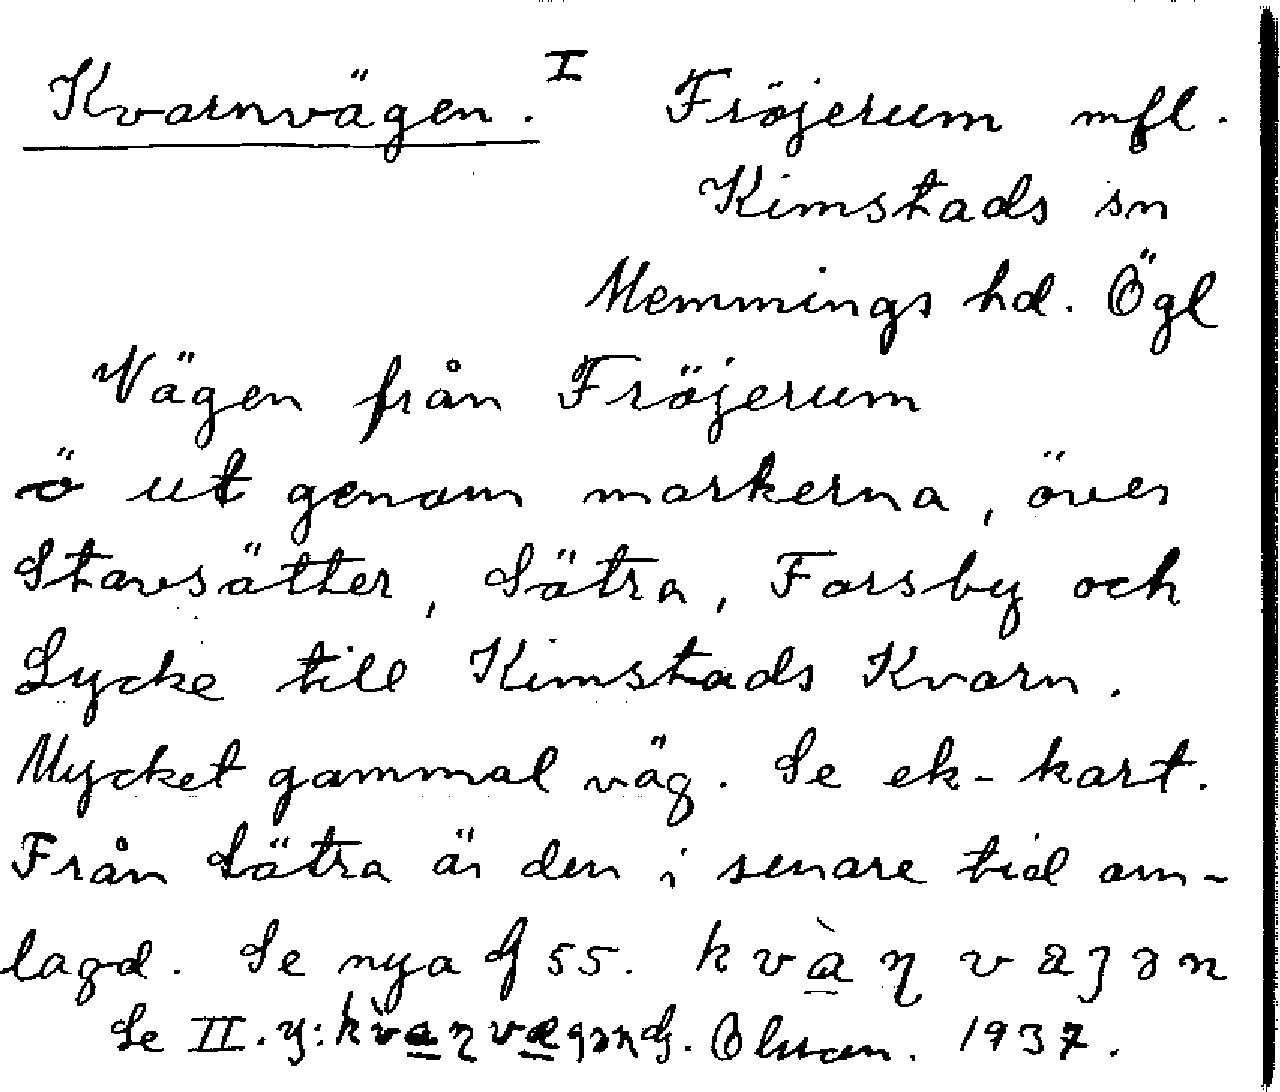 Kvarnvägen. I Fröjerum mfl.
Kimstads sn
Memmings hd. Ögl
Vägen från Fröjerum
ö ut genom markerna, över
Stavsätter, Sätra, Forsby och
Lycke till Kimstads Kvarn.
Mycket gammal väg. Se ek-kart.
Från Sätra är den i senare tid om-
lagd. Se nya G 55.
Se II. 1937.